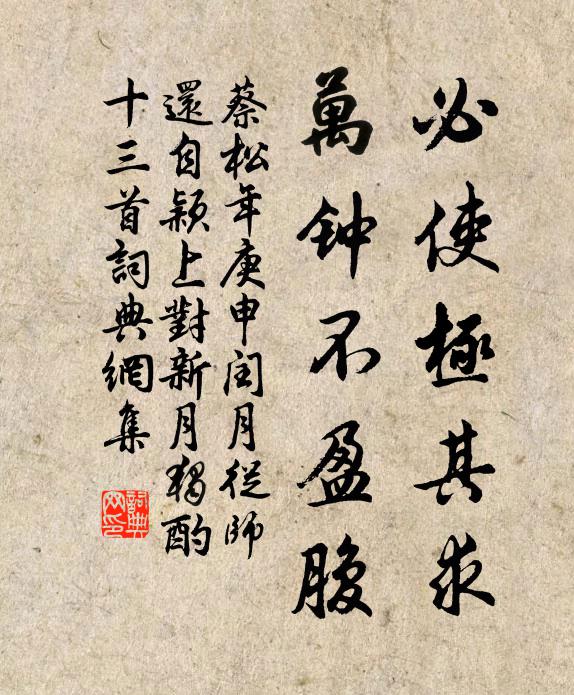 必使極其求
萬钟不盈腹
蔡松年庚申閏月從師
還自潁上對新月獨酌
十三首詞典網集
詞典
网印